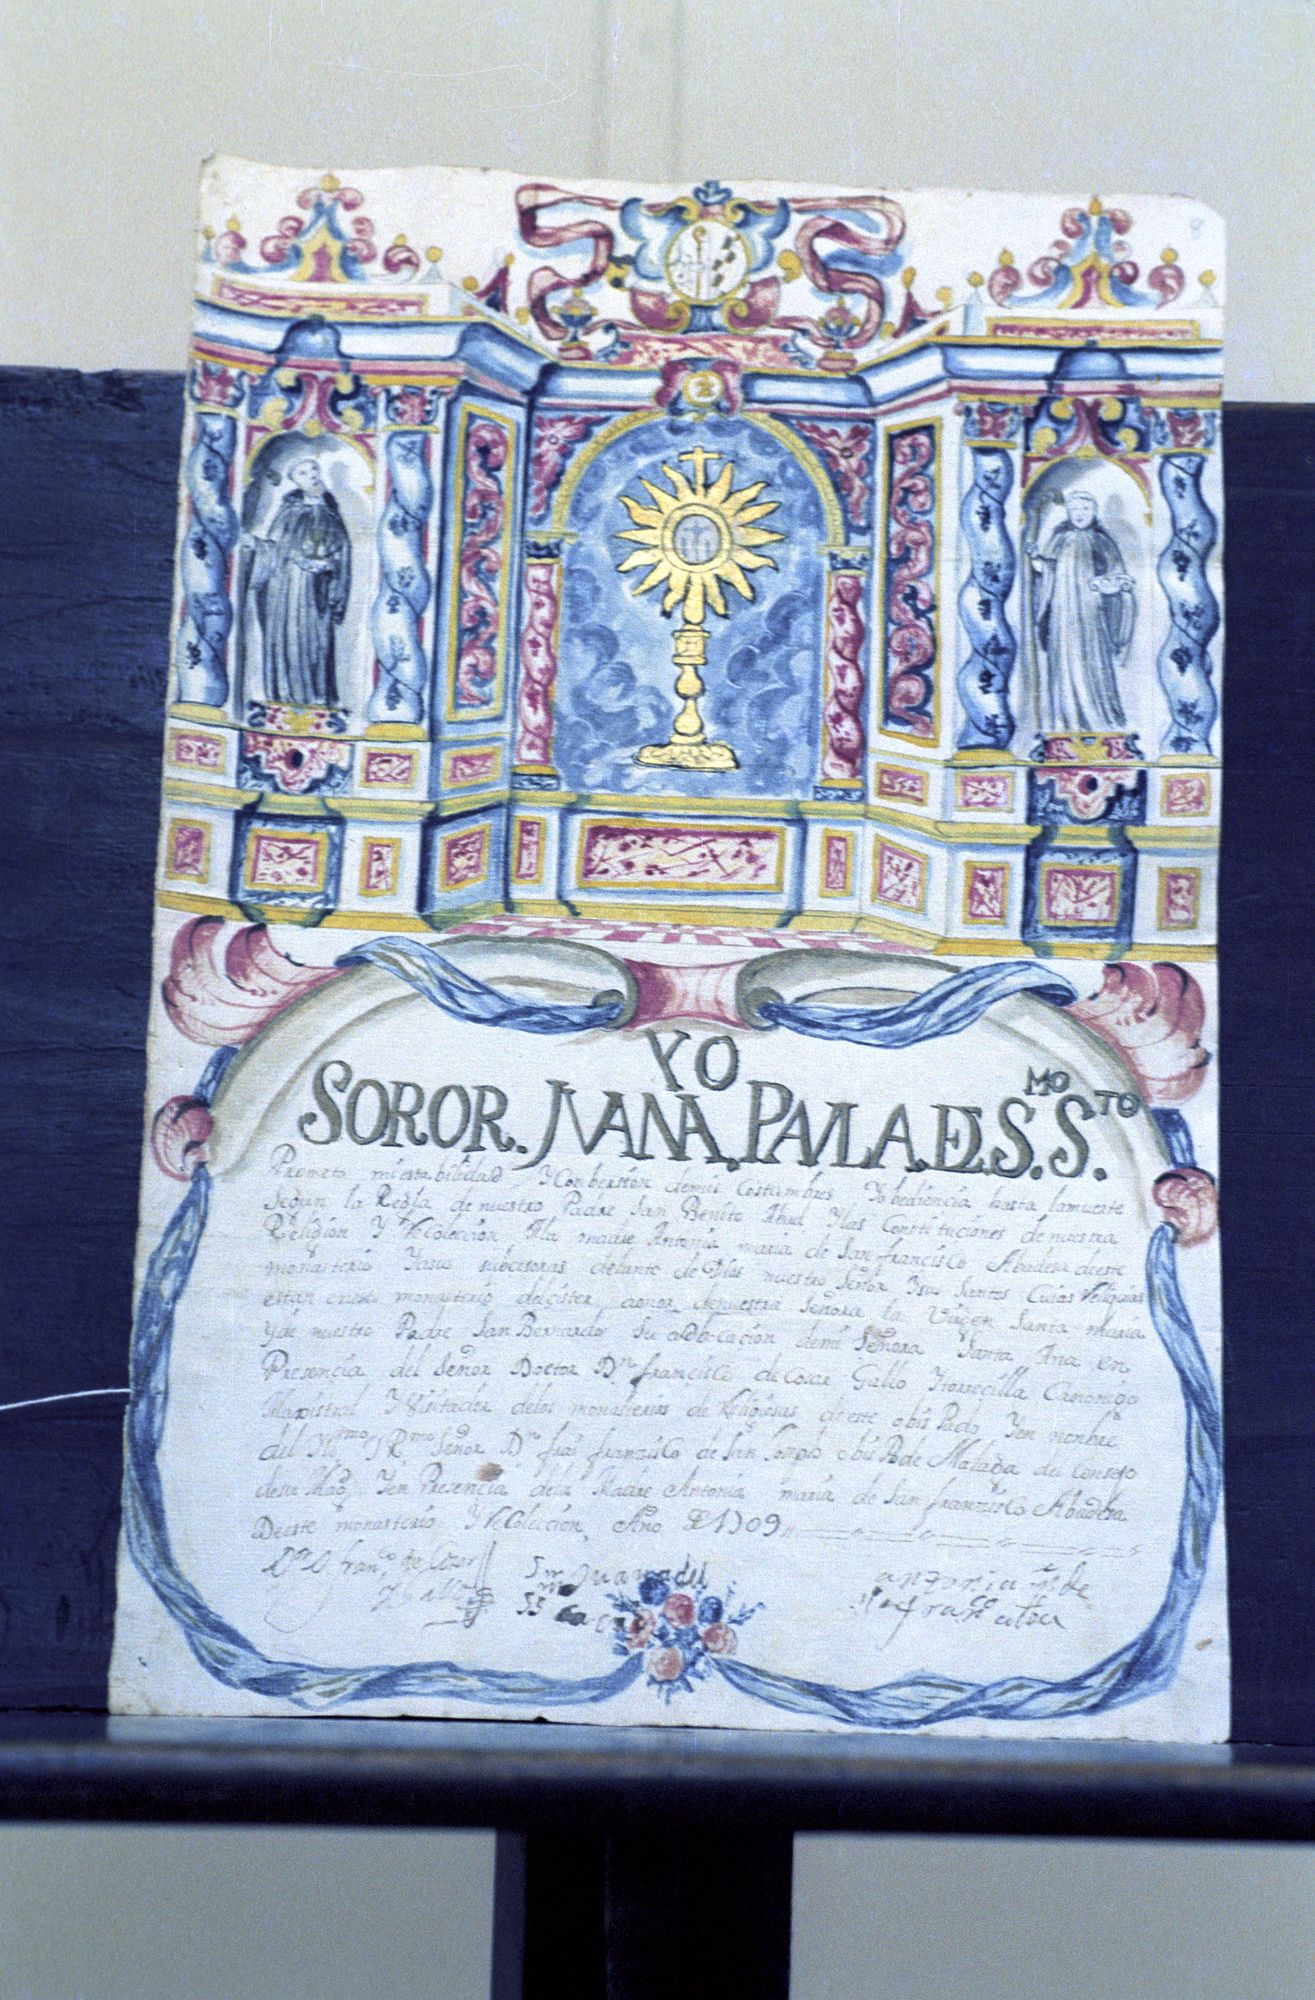 YO
SOROR. JVANA, PAVLA. DE. S.MO S.TO
Prometo mi estabilidad Y Conbersion demis Costumbres Y obediencia hasta lamuerte
Segun la Regla de nuestro Padre San Benito Abad Ylas Constituciones de nuestra
Religion Y Recolección Ala madre Antonia maria de San francisco Abadesa deeste
monasterio Yasus subcesoras delante de Dios nuestro Señor Ysus Santos Cuias Reliquias
estan eneste monasterio delcister, aonor denuestra Señora la Virgen Santa maria
Yde nuestro Padre San Bernardo Su adbocacion demi Señora Santa Ana en
Presencia del Señor Doctor Dn francisco decosar Gallo Ytorrecilla Canonigo
Magistral Y Visitador delos monasterios de Religiosas de este obis Pado Yen nombre
del Yllmo Y Rmo Señor Dn frai franzisco de San Joseph obis Pode Malaga del Consejo
desu Magd Yen Presencia dela Madre Antonia maria de San franzisco Abadesa
Deeste monasterio Y Recolección Año De 1709
Dor D. franco de Cosar
Y Gallo
Sor Juana del
SS
antonia ma de
Sn franco